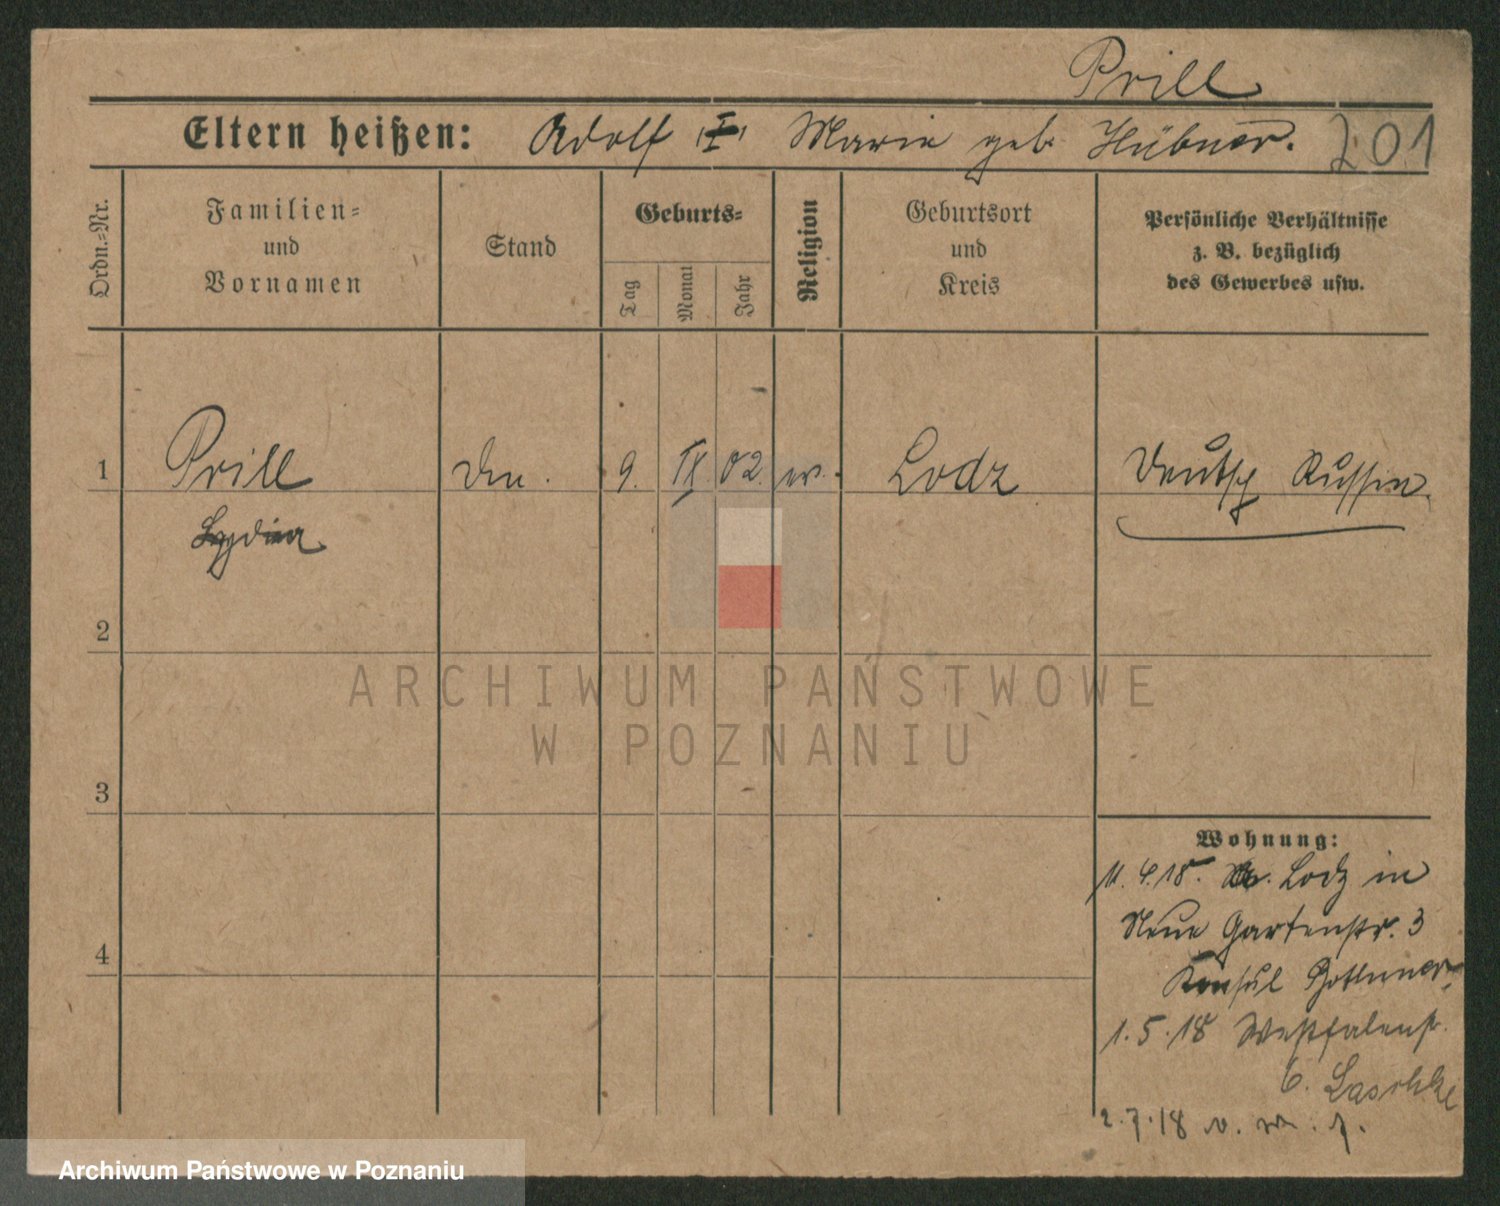 Prill
Eltern heißen: Adolf Marie geb. Hübner. 201
Ordn.-Nr.
Familien-
und
Vornamen
Stand
Geburts-
Tag
Monat
Jahr
Religion
Geburtsort
und
Kreis
Persönliche Verhältnisse
z. B. bezüglich
des Gewerbes usw.
1 Prill 9. IX. 02. ev. Lodz Deutsch Russin
Lydia
2
ARCHIWUM PAŃSTWOWE
W POZNANIU
3
Wohnung:
11. 4. 18. Lodz in
Neue Gartenstr. 3
4
Konsul
1. 5. 18 Westfalenstr.
6. Laschke
2. 7. 18 v.
Archiwum Państwowe w Poznaniu